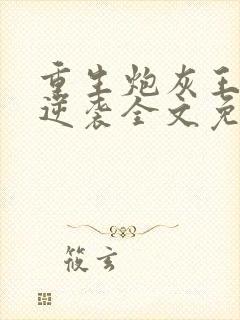 重生炮灰王
逆袭全文免
筱玄